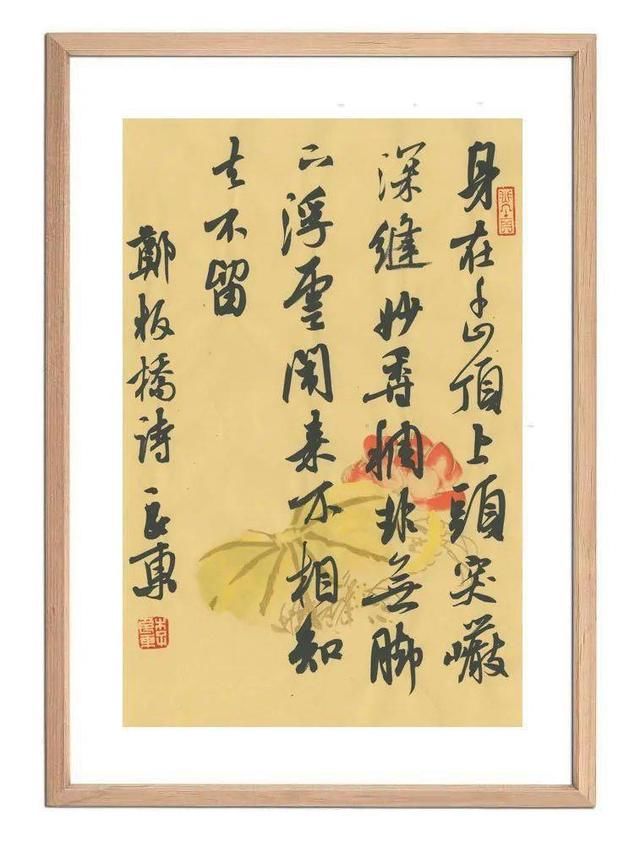 身在千山頂上頭突巖
深縫妙香稠非無脚
下浮雲閙来不相知
去不留
鄭板橋诗 東